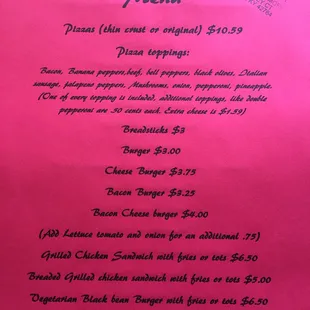 Menu
Pizzas (thin crust or original) $10.59
Pizza toppings:
Bacon, Banana peppers,beef, bell peppers, black olives, Italian
sausage, jalapeno peppers, Mushrooms, onion, pepperoni, pineapple.
(One of every topping is included, additional toppings, like double
pepperoni are .50 cents each. Extra cheese is $1.59)
Breadsticks $3
Burger $3.00
Cheese Burger $3.75
Bacon Burger $3.25
Bacon Cheese burger $4.00
(Add Lettuce tomato and onion for an additional .75)
Grilled Chicken Sandwich with fries or tots $6.50
Breaded Grilled chicken sandwich with fries or tots $5.00
Vegetarian Black bean Burger with fries or tots $6.50